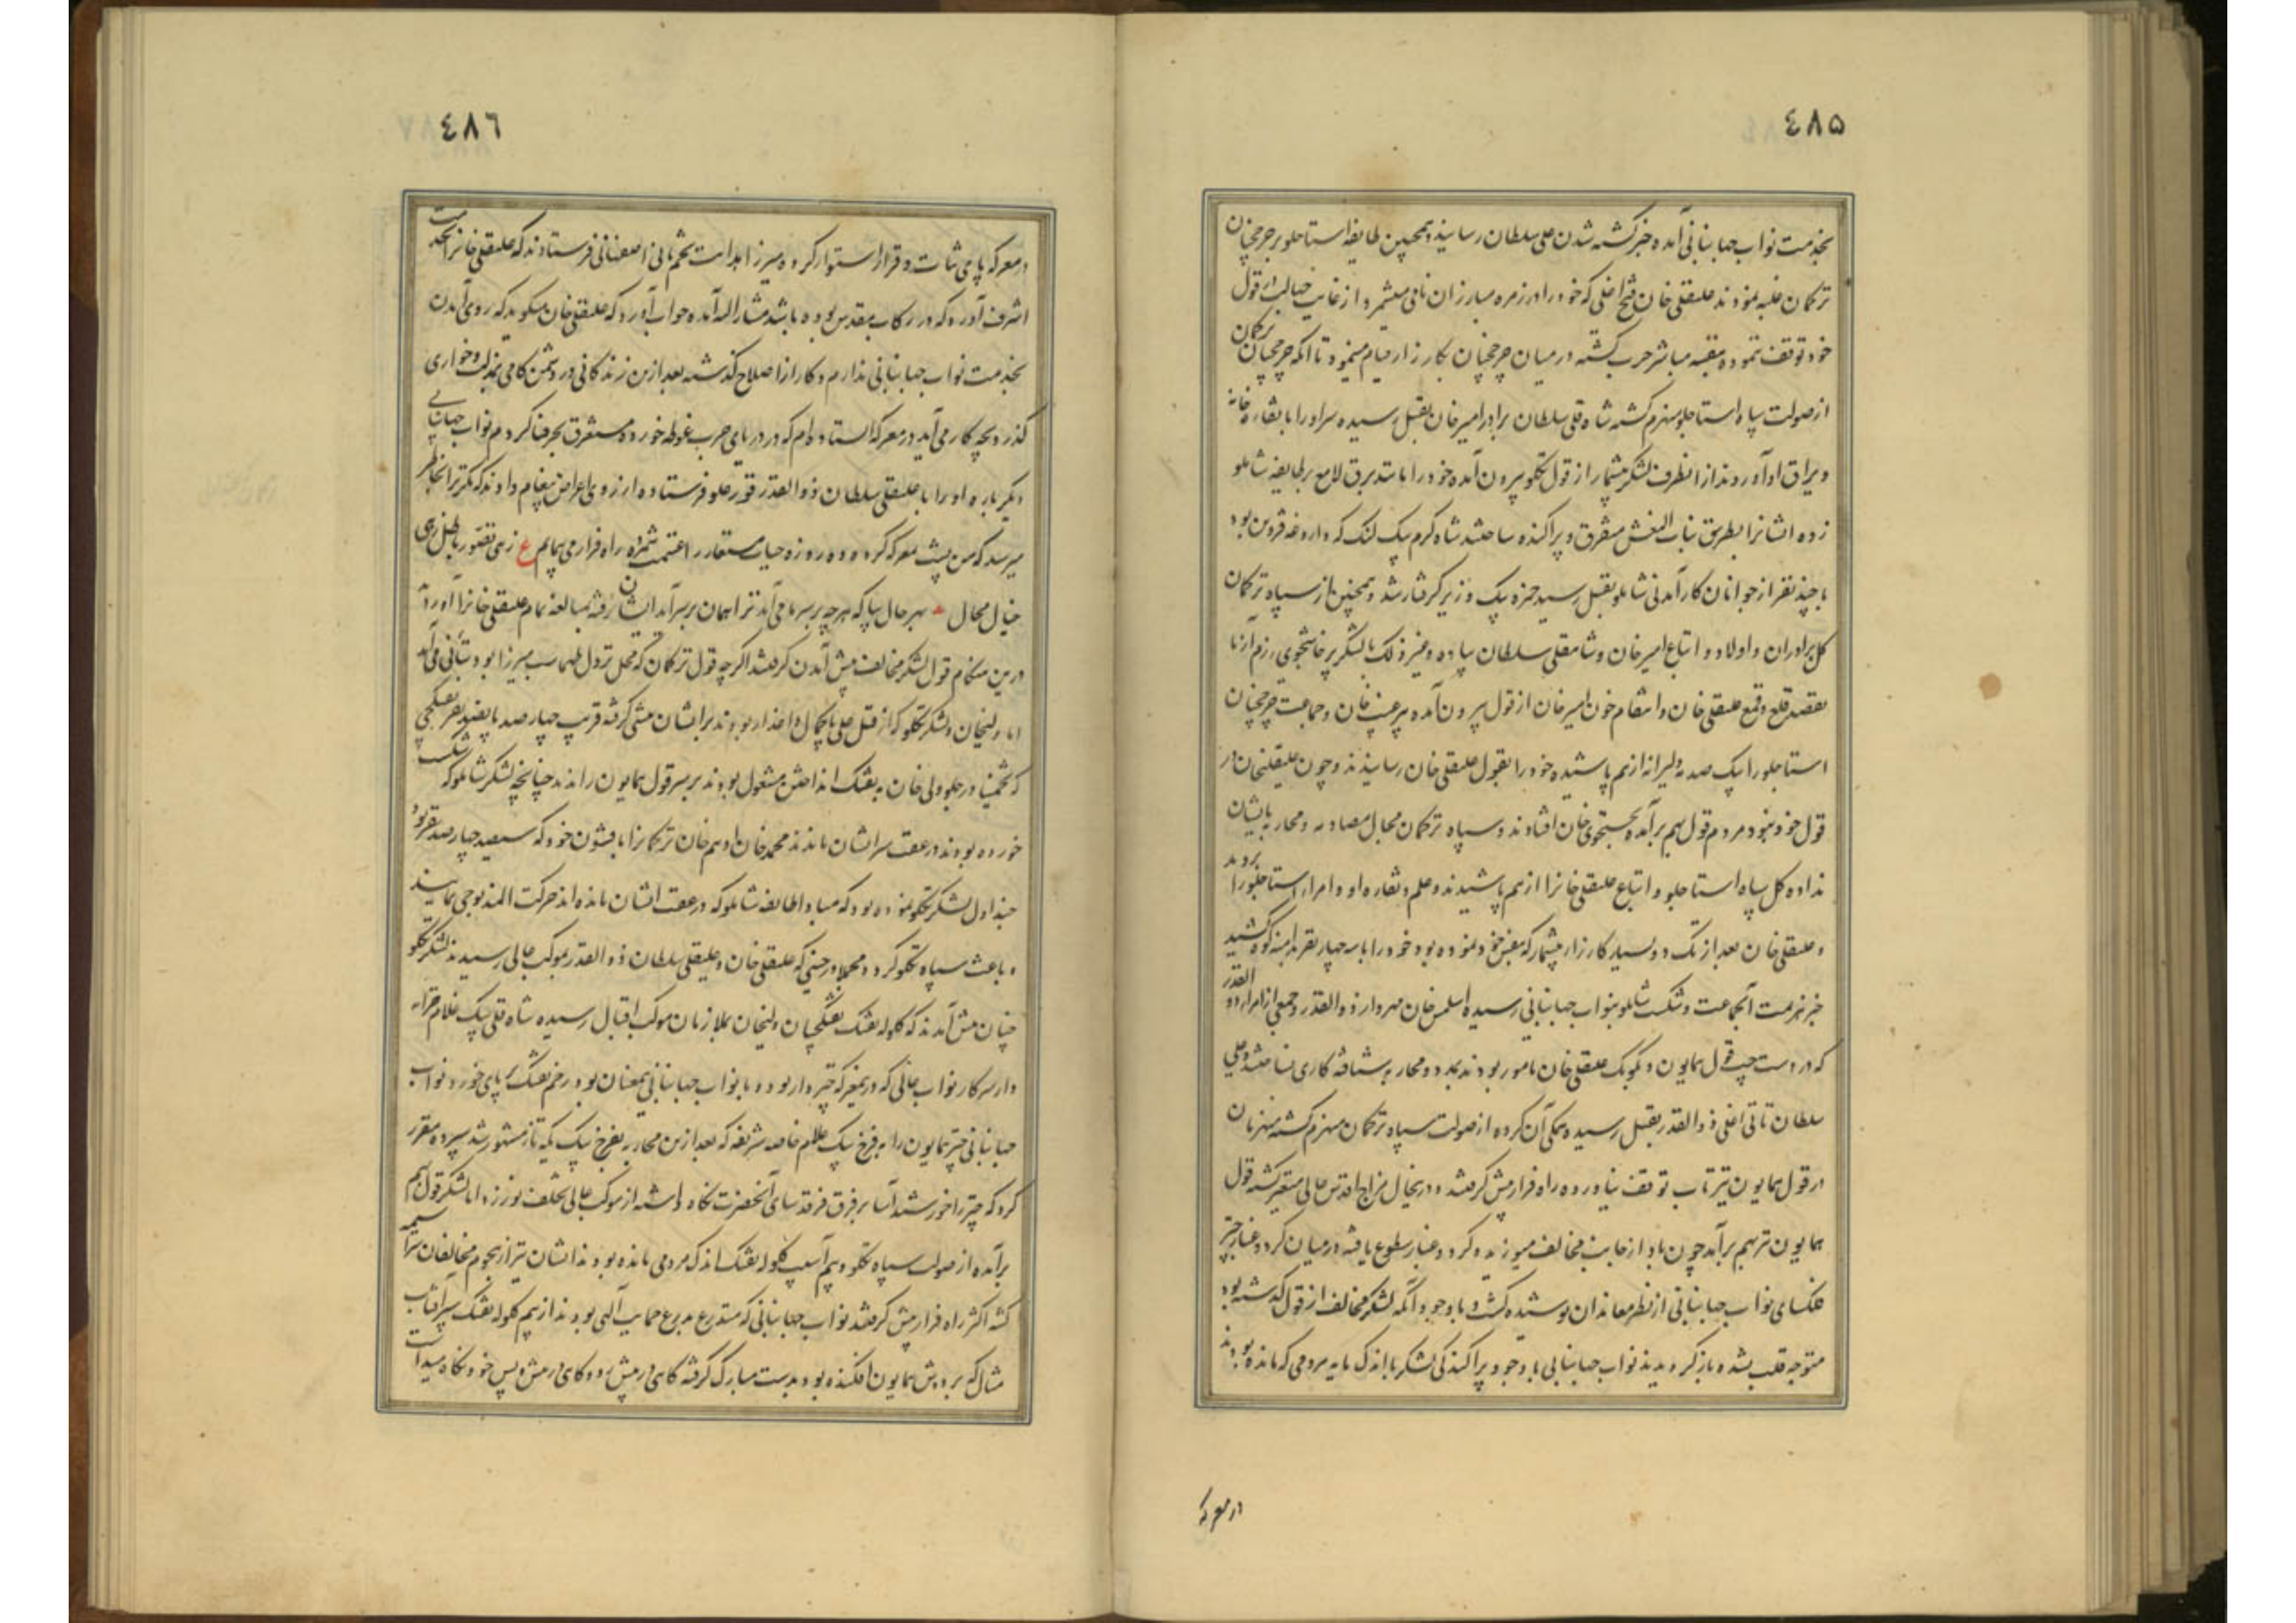 ٤٨۵
بخدمت نواب جهانبانی آمده خبر کشته شدن علی سلطان رسانید و همچنین طایفه استاجلو بر چرخچیان
ترکمان غلبه نمودند علیقلی خان فتح اغلی که خود را در زمره مبارزان نامی میشمرد و از غایت جهالت در قول
خود توقف ننموده بنفسه مباشر حرب گشته در میان چرخچیان بکارزار قیام مینمود تا آنکه چرخچیان ترکمان
از صولت سپاه استاجلو منهزم گشته شاه قلی سلطان برادر امیر خان بقتل رسیده سر او را با نقاره خانه
و یراق او آوردند از انطرف لشکر بیشمار از قول تکلو بیرون آمده خود را مانند برق لامع بر طایفه شاملو
زده ایشانرا بطریق بنات النعش متفرق و پراکنده ساختند شاه کرم بیک لنک که داروغه قزوین بود
با چند نفر از جوانان کارآمدنی شاملو بقتل رسید حمزه بیک وزیر گرفتار شد و همچنین از سپاه ترکمان
کل برادران و اولاد و اتباع امیر خان و شاهقلی سلطان پیاده و غیر ذلک با لشکر پرخاشجوی رزم آزما
بقصد قلع و قمع علیقلی خان و انتقام خون امیر خان از قول بیرون آمده پیر غیب خان و جماعت چرخچیان
استاجلو را بیک صدمه دلیرانه از هم پاشیده خود را بقول علیقلی خان رسانیدند و چون علیقلیخان در
قول خود نبود مردم قول بهم برآمده بجستجوی خان افتادند و سپاه ترکمان مجال مصادمه و محاربه بایشان
نداده کل سپاه استاجلو و اتباع علیقلی خانرا از هم پاشیدند و علم و نقاره او و امراء استاجلو را بردند
و علیقلی خان بعد از تک و دو بسیار کارزار بیشمار که بنفس خود نموده بود خود را با سه چهار نفر بدامنه کوه کشید
خبر هزیمت آنجماعت و شکست شاملو بنواب جهانبانی رسیده اسلمس خان مهردار ذوالقدر و جمعی از امراء ذوالقدر
که در دست چپ قول همایون و بکومک علیقلی خان مامور بودند بمدد و محاربه شتافته کاری نساختند و علی
سلطان تاتی اغلی ذوالقدر بقتل رسیده همگی آن گروه از صولت سپاه ترکمان منهزم گشته منهزمان
در قول همایون نیز تاب توقف نیاورده راه فرار پیش گرفتند و در اینحال مزاج اقدس عالی متغیر گشته قول
همایون نیز بهم برآمد چون باد از جانب مخالف میوزید و گرد و غبار سطوع یافته در میان گرد و غبار چتر
فلکسای نواب جهانبانی از نظر معاندان پوشیده گشت و با وجود آنکه لشکر مخالف از قول گذشته بود
متوجه قلب شده باز گردیدند نواب جهانبانی با وجود پراکندگی لشکر با اندک مایه مردمی که مانده بودند
در معرکه
٤٨٦
در معرکه پای ثبات و قرار استوار کرده میرزا هدایت نجم ثانی اصفهانی فرستادند که علیقلی خانرا بخدمت
اشرف آورد که در رکاب مقدس بوده باشد مشارالیه آمده جواب آورد که علیقلی خان میگوید که روی آمدن
بخدمت نواب جهانبانی ندارم و کار از اصلاح گذشته بعد ازین زندگانی در دشمن کامی بمذلت و خواری
گذرد بچه کار می آید در معرکه ایستاده ام که در دریای حرب غوطه خورده مستغرق بحر فنا گردم نواب جهانبانی
دیگر باره او را با علیقلی سلطان ذوالقدر قورعلو فرستاده از روی اعراض پیغام دادند که مگر ترا بخاطر
میرسد که من پشت بمعرکه کرده و ده روزه حیات مستعار را غنیمت شمرده راه فرار می پیمایم ع زهی تصور باطل زهی
خیال محال ۰ بهر حال بیا که هر چه بر سر ما می آید ترا همان بر سر آید ایشان رفته بمبالغه تمام علیقلی خانرا آوردند
درین هنگام قول لشکر مخالف پیش آمدن گرفتند اگرچه قول ترکمان که محل نزول طهماسب میرزا بود بتأنی می آمد
اما ولیخان و لشکر تکلو که از قتل علی پاکمال داغدار بودند بر ایشان پیشی گرفته قریب چهار صد پانصد نفر تفنگچی
که تخمینا در جلو ولی خان به تفنگ انداختن مشغول بودند بر سر قول همایون راندند چنانچه لشکر شاملو که شکست
خورده بودند در عقب سر ایشان ماندند محمد خان و ادهم خان ترکمانرا با قشون خود که سیصد چهار صد نفر بود
چنداول لشکر تکلو نموده بود که مبادا طایفه شاملو که در عقب ایشان مانده اند حرکت المذبوحی نمایند
و باعث سپاه تکلو گردد و مجملا در حینی که علیقلی خان و علیقلی سلطان ذوالقدر بموکب عالی رسیدند لشکر تکلو
چنان پیش آمدند که گلوله تفنک تفنگچیان ولیخان بملازمان موکب اقبال رسیده شاه قلی بیک غلام خزانه
دار سرکار نواب عالی که در معرکه چتر دار بود و با نواب جهانبانی همعنان بود زخم تفنک بر پای خورد نواب
جهانبانی چتر همایون را به فرخ بیک غلام خاصه شریفه که بعد ازین محاربه بفرخ بیک یکه تاز مشهور شد سپرده مقرر
کرد که چتر را خورشید آسا بر فرق فرقد سای آنحضرت نگاه داشته از موکب عالی تخلف نورزد اما لشکر قول بهم
برآمده از صولت سپاه تکلو و بیم آسیب گلوله تفنک اندک مردمی مانده بودند ایشان نیز از هجوم مخالفان سراسیمه
گشته اکثر راه فرار پیش گرفتند نواب جهانبانی که متدرع بدرع حمایت آلهی بودند از بیم گلوله تفنک سپر آفتاب
مثال که بر دوش همایون افکنده بود بدست مبارک گرفته گاهی در پیش رو و گاهی در پیش و پس خود نگاه میداشت